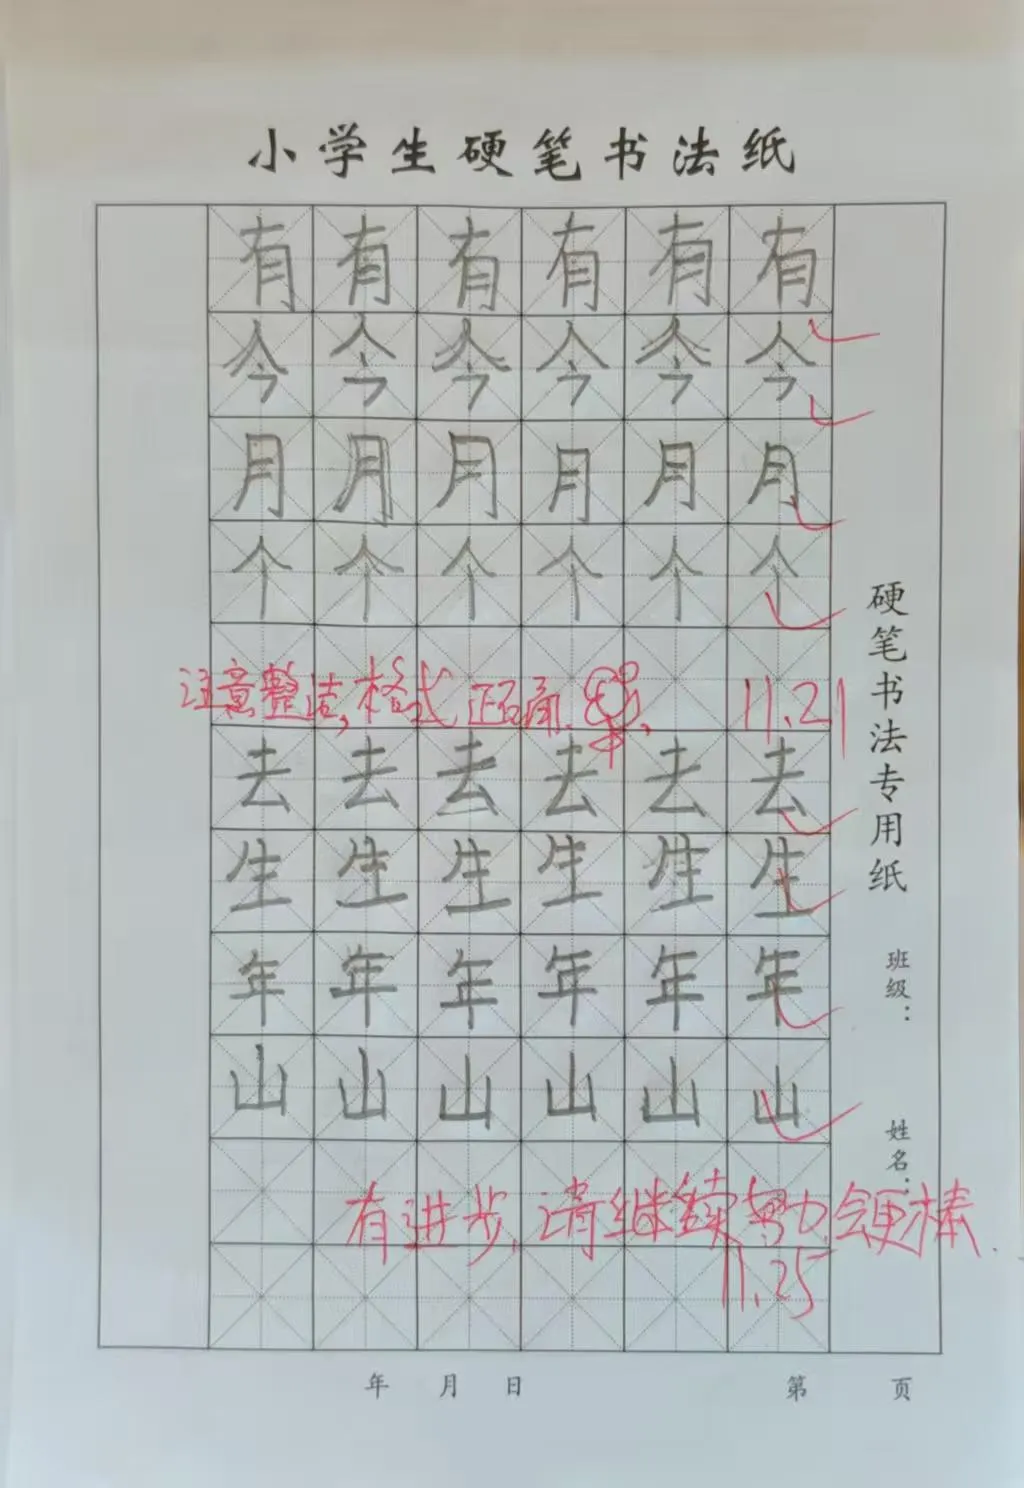 小学生硬笔书法纸
有有有有有有
今今今今今今
月月月月月月
个个个个个个
注意整洁,格式正确. 11.21
去去去去去去
生生生生生生
年年年年年年
山山山山山山
有进步,请继续努力,会更棒.
11.25
硬笔书法专用纸
班级：
姓名：
年 月 日
第 页